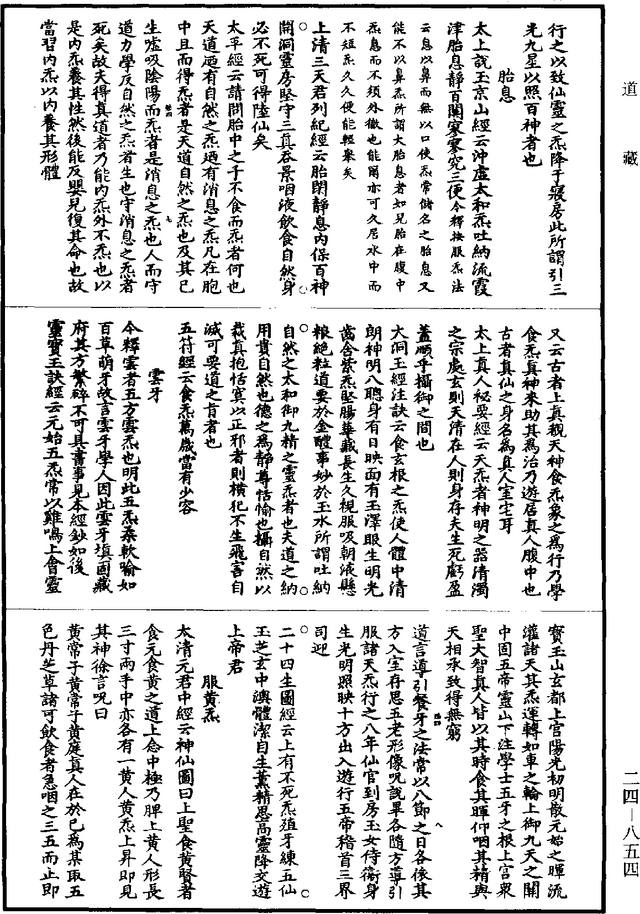 道藏
行之以致仙靈之炁降于寢房此所謂引三
光九星以照百神者也
胎息
太上說玉京山經云沖虛太和炁吐納流霞
津胎息靜百關寥寥究三便今釋按服炁法
云息以鼻而無以口使炁常儲名之胎息又
能不以鼻炁所謂大胎息者如兒胎在腹中
炁息而不須外徹也能爾亦可久居水中而
不短炁久久便能輕舉矣
上清三天君列紀經云胎閉靜息內保百神
開洞靈房堅守三真吞景咽液飲食自然身
必不死可得陸仙矣
太平經云請問胎中之子不食而炁者何也
天道迺有自然之炁迺有消息之炁凡在胞
中且而得炁者是天道自然之炁也及其已
生噓吸陰陽而炁者是消息之炁也人而守
道力學反自然之炁者生也守消息之炁者
死矣故夫得真道者乃能內炁外不炁也以
是內炁養其性然後能反嬰兒復其命也故
當習內炁以內養其形體
又云古者上真觀天神食炁象之為行乃學
食炁真神來助其為治乃遊居真人腹中也
古者真仙之身名為真人室宅耳
太上真人秘要經云天炁者神明之器清濁
之宗處玄則天清在人則身存夫生死虧盈
蓋順乎攝御之間也
大洞玉經注訣云食玄根之炁使人體中清
朗神明八聰身有日映面有玉澤眼生明光
齒含紫炁堅腸華藏長生久視服吸朝液懸
粮絕粒道要於金醴事妙於玉水所謂吐納
自然之太和御九精之靈炁者也夫道之納
用貴自然也德之為靜尊恬愉也攝自然以
栽真抱恬寞以正邪者則橫犯不生飛害自
滅可要道之旨者也
五符經云食炁萬歲當有少容
雲牙
今釋雲者五方雲炁也明此五炁柔軟喻如
百草萌牙故言雲牙學人因此雲牙填固藏
府其方繁碎不可具書事見本經鈔如後
靈寶玉訣經云元始五炁常以雞鳴上會靈
寶玉山玄都上宮陽光初明散元始之暉流
灌諸天其炁運轉如車之輪上御九天之關
中固五帝靈山下注學士五牙之根上宮衆
聖大智真人皆以其時食其暉仰咽其精與
天相承致得無窮
道言導引餐牙之法常以八節之日各後其
方入室存思五老形像呪說畢各隨方導引
服諸天炁行之八年仙官到房玉女侍衛身
生光明照映十方出入遊行五帝稽首三界
司迎
二十四生圖經云上有不死炁殖牙練五仙
玉芝玄中澳體潔自生薰精思高靈降交遊
上帝君
服黃炁
太清元君中經云神仙圖曰上聖食黃賢者
食元食黃之道上念中極乃脾上黃人形長
三寸兩手中亦各有一黃人黃炁上昇即見
其神徐言呪曰
黃常子黃常子黃庭真人在於己為某取五
色丹芝草諸可飲食者急咽之三五而止即
二四—八五四